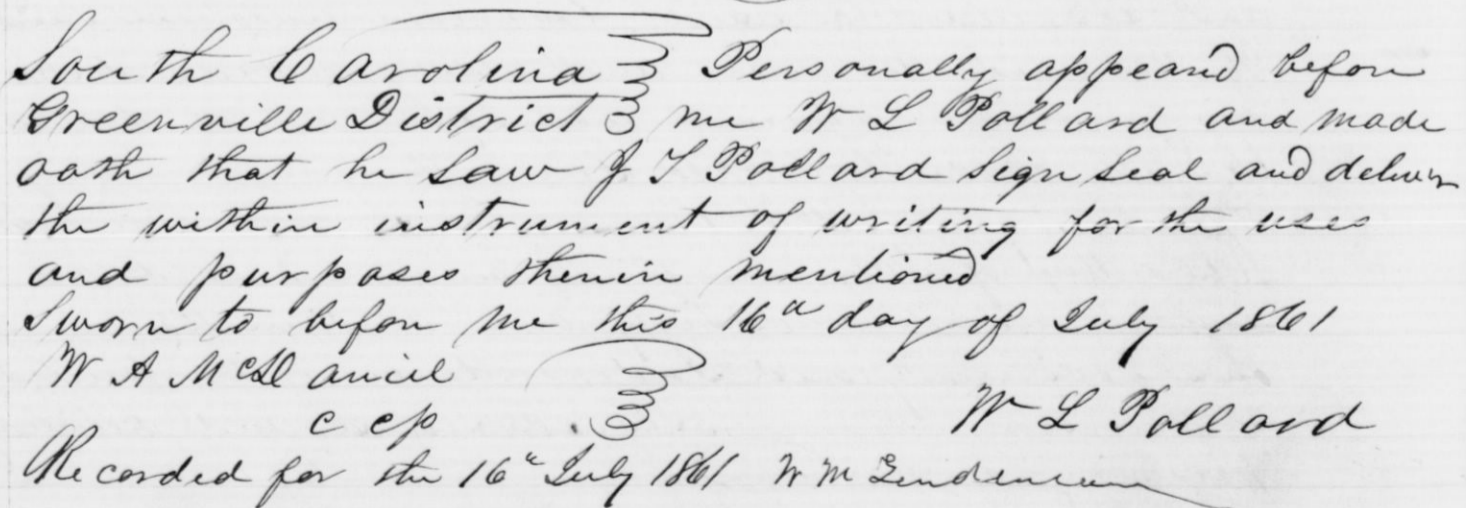 South Carolina Personally appeard before
Greenville District me W L Pollard and made
oath that he saw J T Pollard sign seal and deliver
the within instrument of writing for the uses
and purposes therein mentioned
Sworn to before me this 16th day of July 1861
W A McDaniel
c c p W L Pollard
Recorded for the 16th July 1861 W M